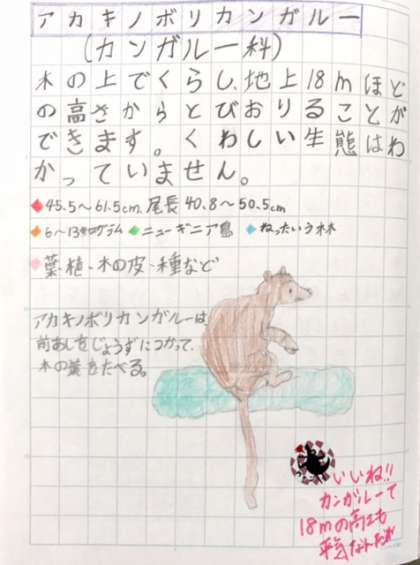 アカキノボリカンガルー
(カンガルー科)
木の上でくらし、地上18mほど
の高さからとびおりることが
できます。くわしい生態はわ
かっていません。
45.5〜61.5cm、尾長 40.8〜50.5cm
6〜13キログラム ニューギニア島 ねったいう林
葉・植・木の皮・種など
アカキノボリカンガルーは
前あしをじょうずにつかって、
木の葉をたべる。
いいね!!
カンガルーで
18mの高さも
平気なんだね